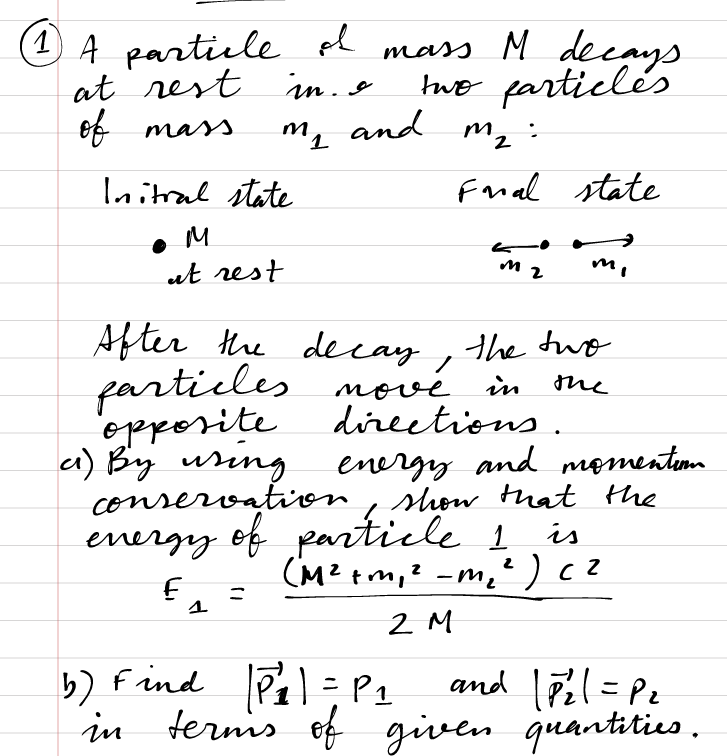 ① A particle of mass M decays
at rest in two particles
of mass m₁ and m₂ :
Initial state Final state
• M
at rest m₂ m₁
After the decay, the two
particles move in the
opposite directions.
a) By using energy and momentum
conservation, show that the
energy of particle 1 is
E₁ = (M² + m₁² − m₂²) c² / 2M
b) Find |p⃗₁| = P₁ and |p⃗₂| = P₂
in terms of given quantities.